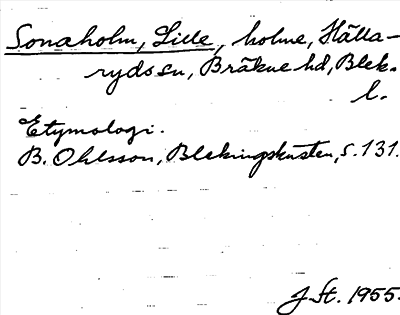 Sonaholm, Lille, holme, Hälla-
ryds sn, Bräkne hd, Blek.
l.
Etymologi.
B. Ohlsson, Blekingskusten, s. 131.
J. St. 1955.